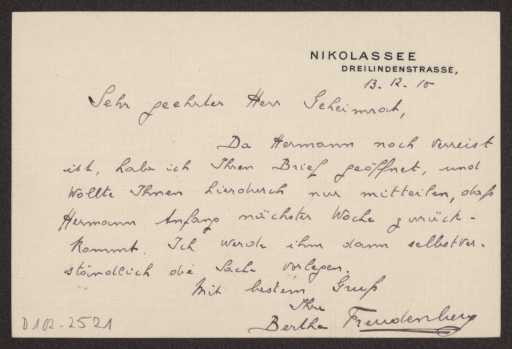 NIKOLASSEE
DREILINDENSTRASSE,
13. 12. 10
Sehr geehrter Herr Geheimrat,
Da Hermann noch verreist
ist, habe ich Ihren Brief geöffnet, und
wollte Ihnen hierdurch nur mitteilen, daß
Hermann Anfang nächster Woche zurück-
kommt. Ich werde ihm dann selbstver-
ständlich die Sache vorlegen.
Mit bestem Gruß
Ihre
Bertha Freudenberg
D 102-2521